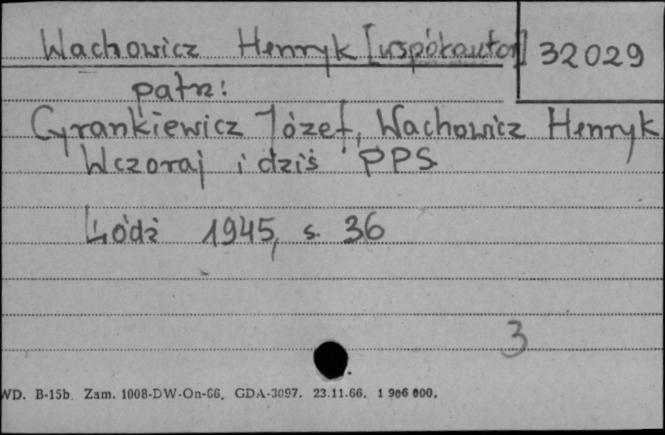 Wachowicz Henryk [współautor] 32029
patrz:
Cyrankiewicz Józef, Wachowicz Henryk
Wczoraj i dziś PPS
Łódź 1945, s. 36
3
WD. B-15b. Zam. 1008-DW-On-66. GDA-3097. 23.11.66. 1 906 000.